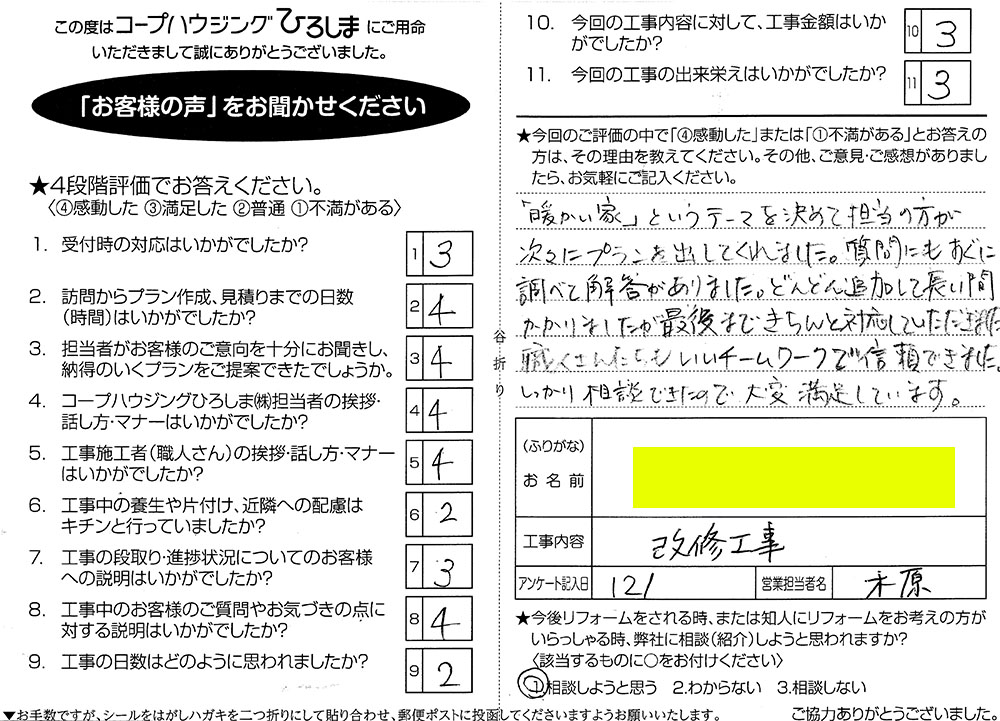 この度はコープハウジングひろしまにご用命
いただきまして誠にありがとうございました。
「お客様の声」をお聞かせください
★4段階評価でお答えください。
〈④感動した ③満足した ②普通 ①不満がある〉
1. 受付時の対応はいかがでしたか?
1 3
2. 訪問からプラン作成、見積りまでの日数
(時間)はいかがでしたか?
2 4
3. 担当者がお客様のご意向を十分にお聞きし、
納得のいくプランをご提案できたでしょうか。
3 4
4. コープハウジングひろしま㈱担当者の挨拶・
話し方・マナーはいかがでしたか?
4 4
5. 工事施工者(職人さん)の挨拶・話し方・マナー
はいかがでしたか?
5 4
6. 工事中の養生や片付け、近隣への配慮は
キチンと行っていましたか?
6 2
7. 工事の段取り・進捗状況についてのお客様
への説明はいかがでしたか?
7 3
8. 工事中のお客様のご質問やお気づきの点に
対する説明はいかがでしたか?
8 4
9. 工事の日数はどのように思われましたか?
9 2
▼お手数ですが、シールをはがしハガキを二つ折りにして貼り合わせ、郵便ポストに投函してくださいますようお願いいたします。
谷折り
10. 今回の工事内容に対して、工事金額はいか
がでしたか?
10 3
11. 今回の工事の出来栄えはいかがでしたか?
11 3
★今回のご評価の中で「④感動した」または「①不満がある」とお答えの
方は、その理由を教えてください。その他、ご意見・ご感想がありまし
たら、お気軽にご記入ください。
「暖かい家」というテーマを決めて担当の方が
次々にプランを出してくれました。質問にもすぐに
調べて解答がありました。どんどん追加して長い間
かかりましたが最後まできちんと対応していただきました
職人さんたちもいいチームワークで信頼できました。
しっかり相談できたので大変満足しています。
(ふりがな)
お名前
工事内容 改修工事
アンケート記入日 12/ 営業担当者名 木原
★今後リフォームをされる時、または知人にリフォームをお考えの方が
いらっしゃる時、弊社に相談(紹介)しようと思われますか?
〈該当するものに○をお付けください〉
1.相談しようと思う 2.わからない 3.相談しない
ご協力ありがとうございました。